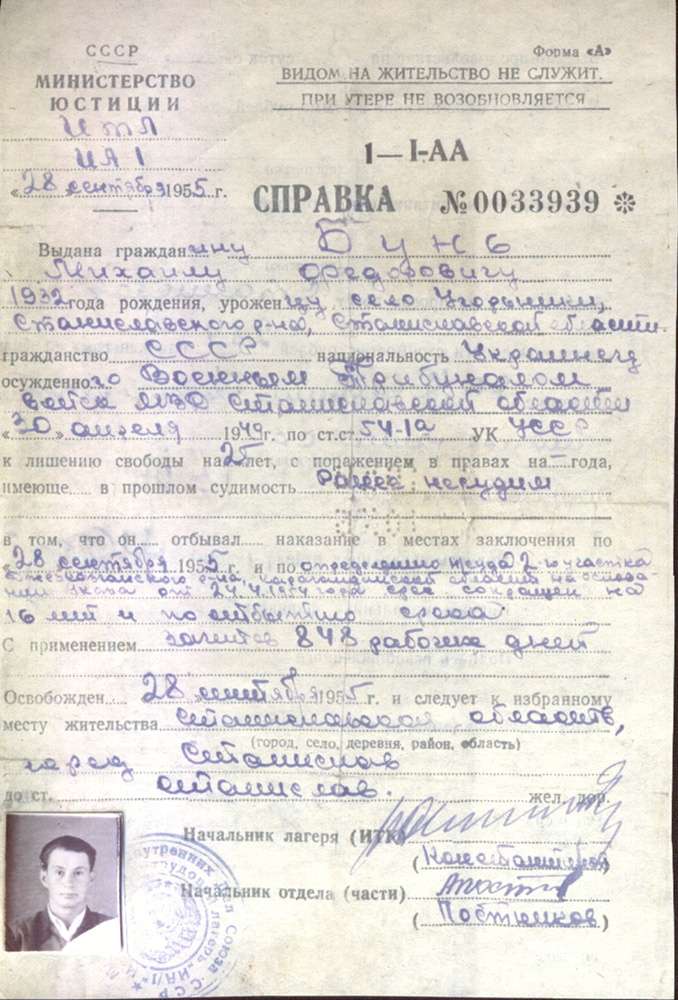 СССР
МИНИСТЕРСТВО
ЮСТИЦИИ
ИТЛ
ИА 1
«28» сентября 1955 г.
Форма «А»
ВИДОМ НА ЖИТЕЛЬСТВО НЕ СЛУЖИТ.
ПРИ УТЕРЕ НЕ ВОЗОБНОВЛЯЕТСЯ
1—I-АА
СПРАВКА №0033939 *
Выдана гражданину Бунь
Михаилу Федоровичу
1932 года рождения, урожен цу село Угорники,
Станиславского р-на, Станиславской области.
гражданство СССР национальность Украинец
осужденного Военным Трибуналом
войск МВД Станиславской области
«30» апреля 1949г. по ст.ст. 54-1а УК УССР
к лишению свободы на 25 лет, с поражением в правах на — года,
имеюще..... в прошлом судимость Ранее несудим
в том, что он..... отбывал..... наказание в местах заключения по
«28 сентября 1955 г. и по определению Нсуда 2-го участка
р-на, Карагандинской области на основа-
нии Указа от 24.4.1954 года срок сокращен на
16 лет и по отбытию срока
С применением зачетов 848 рабочих дней
Освобожден..... 28 сентября 1955 г. и следует к избранному
месту жительства Станиславская область,
(город, село, деревня, район, область)
город Станислав
до ст. Станислав. жел. дор.
Начальник лагеря (ИТК)
Начальник отдела (части)
(Постников)
внутренних дел Союза ССР
лагерь "ИА/1"